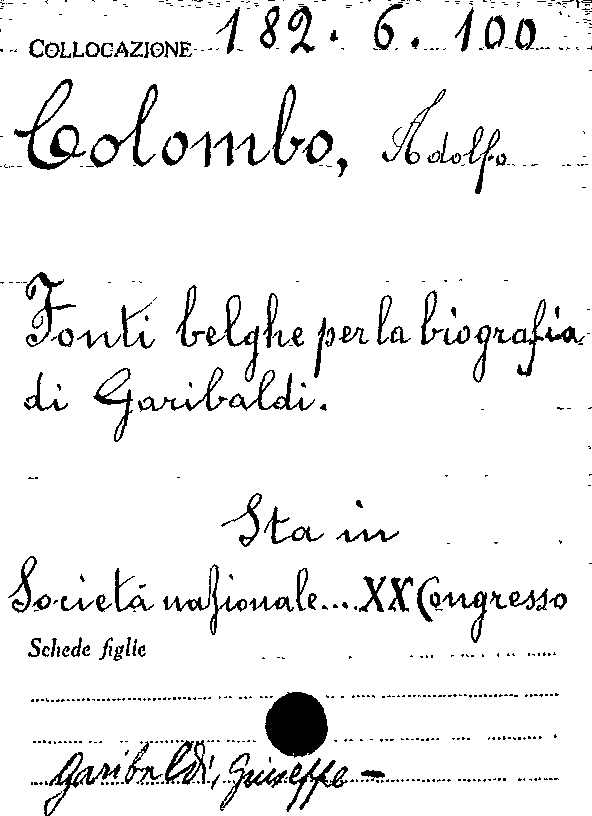 COLLOCAZIONE 182. 6. 100
Colombo, Adolfo
Fonti belghe per la biografia
di Garibaldi.
Sta in
Società nazionale... XX Congresso
Schede figlie
Garibaldi, Giuseppe -